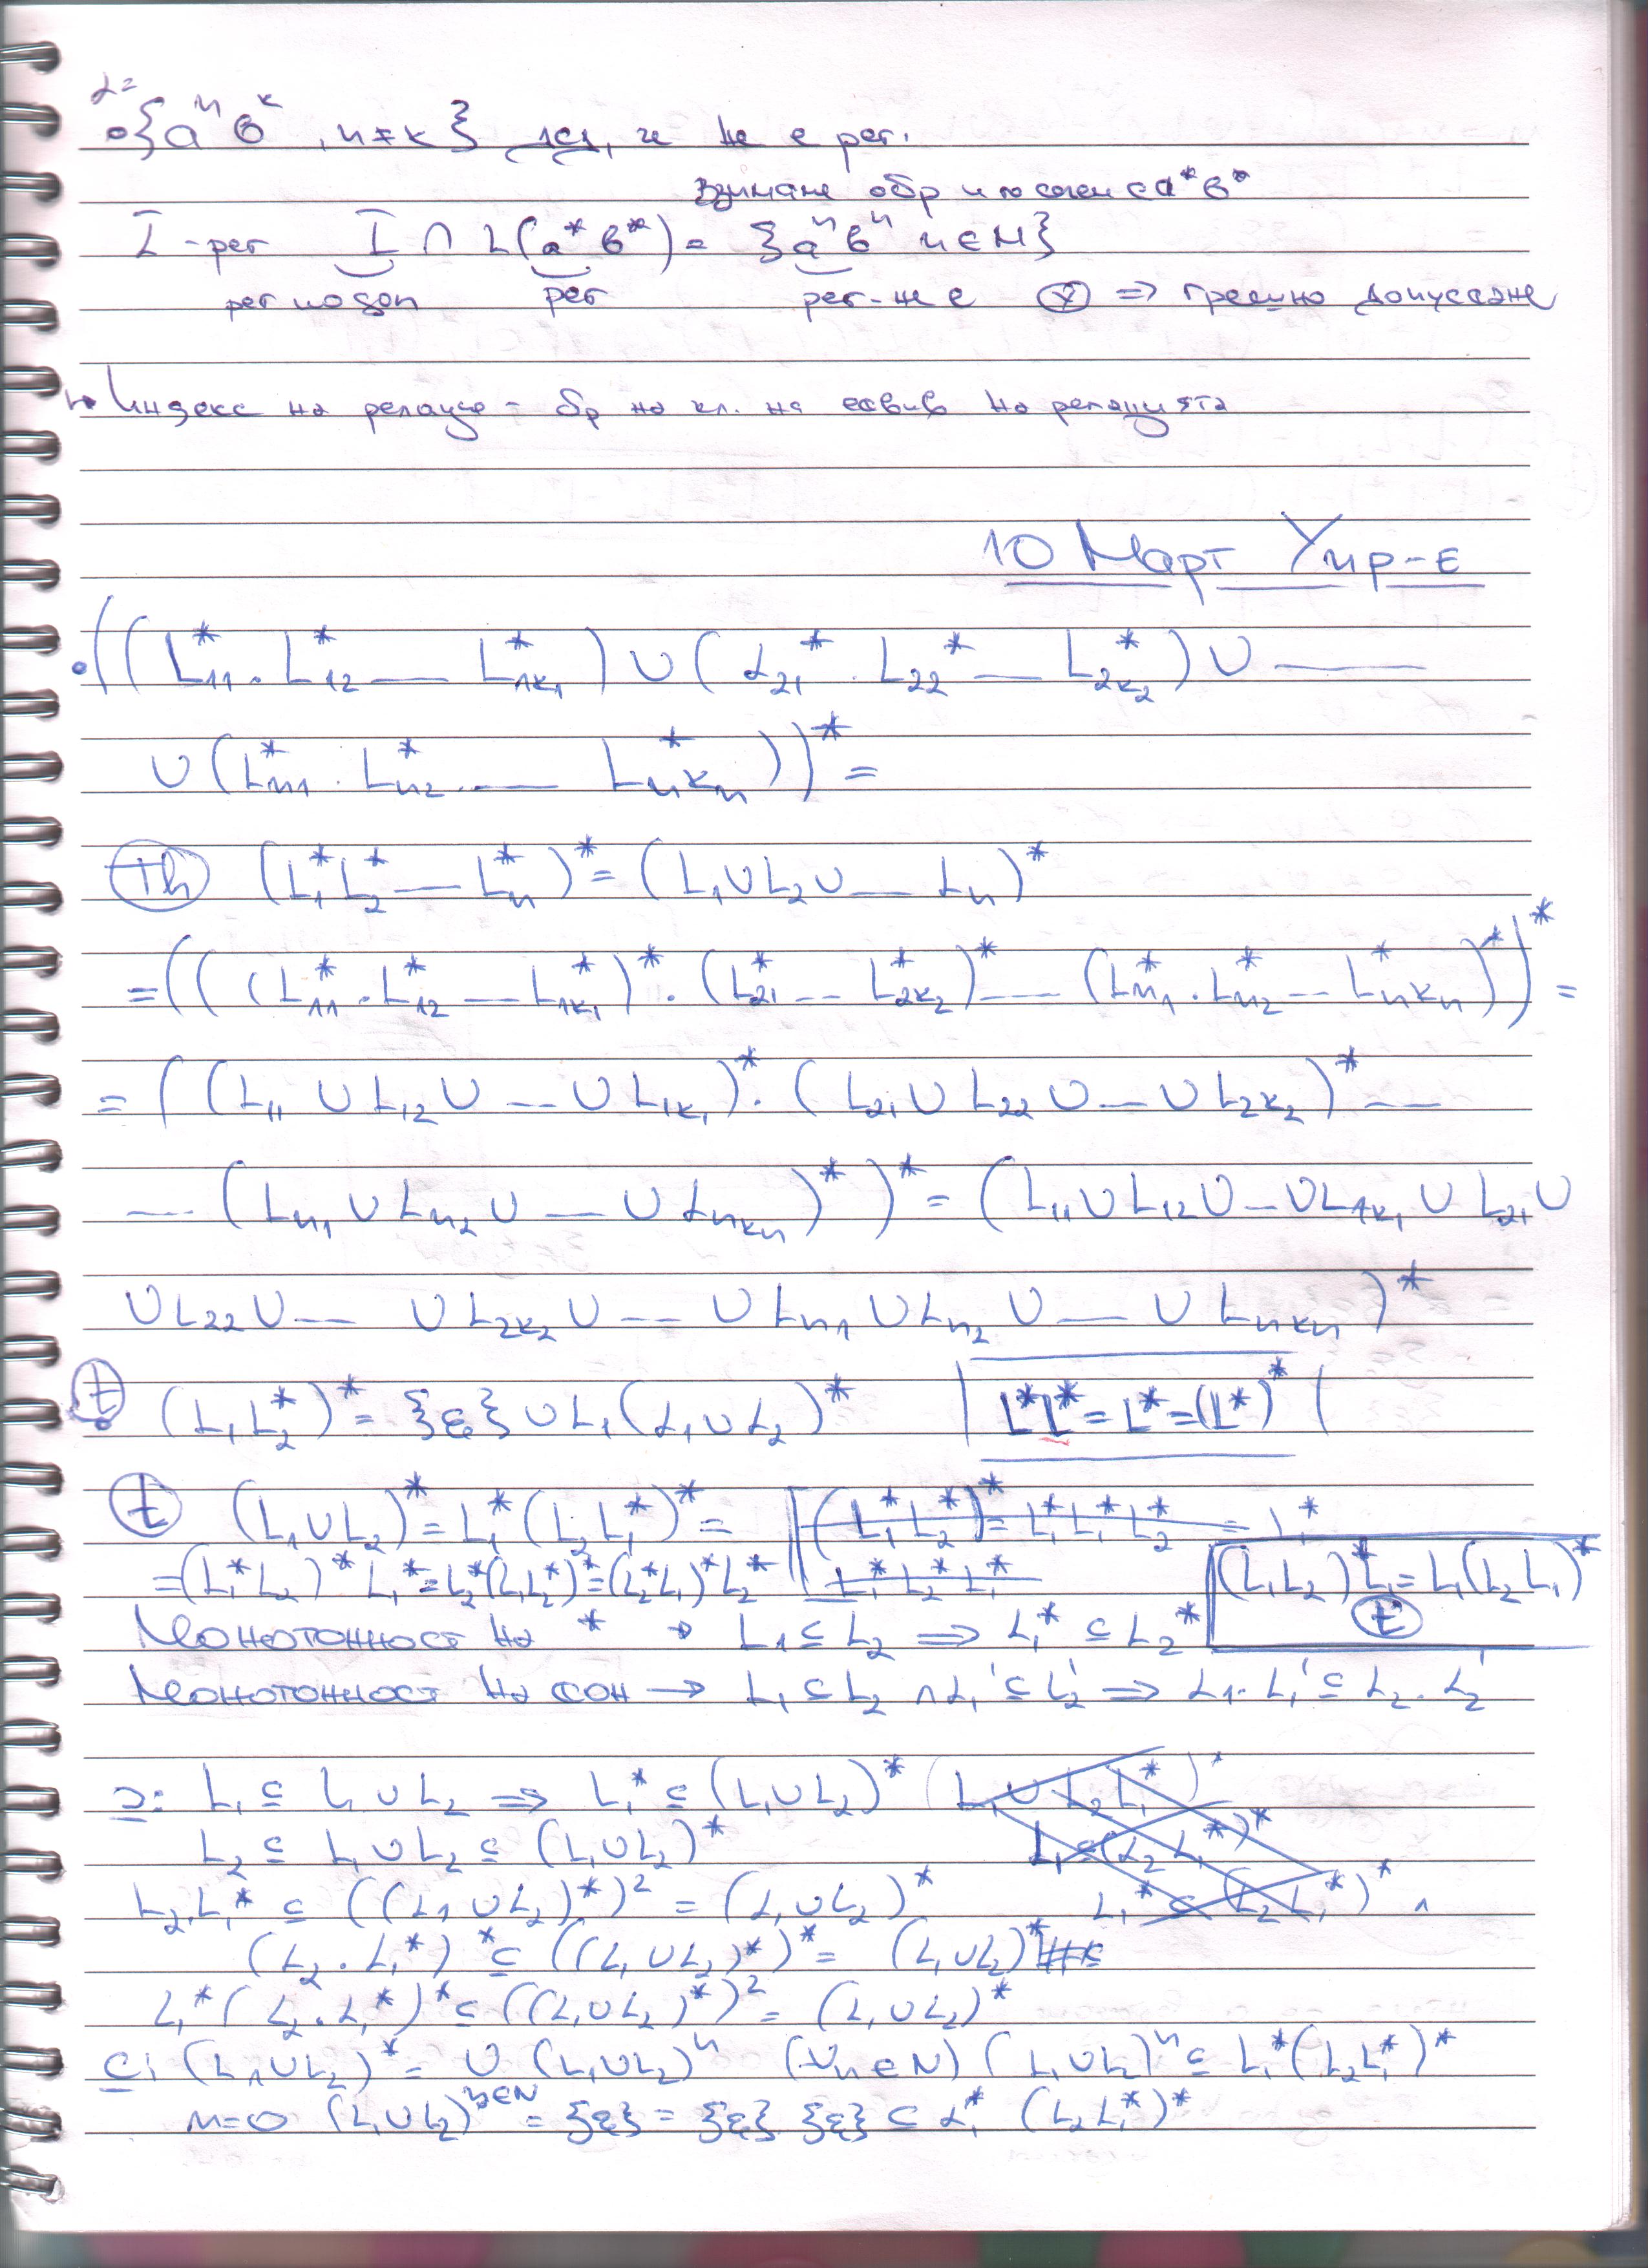 L=
• {aⁿ bᵏ , n ≠ k} че не е рег.
взимаме обр и го сечем с a*b*
L̅ - рег L̅ ∩ L(a* b*) = {aⁿ bⁿ n ∈ N}
рег по доп рег рег - не е ⇒ грешно допускане
↳ Индекс на релация - бр на кл. на еквив на релацията
10 Март Упр-е
• ((L₁₁* . L₁₂* — L₁ₖ₁*) ∪ (L₂₁* . L₂₂* — L₂ₖ₂*) ∪ ——
∪ (Lₙ₁* . Lₙ₂* . — Lₙₖₙ*))* =
(Th) (L₁* L₂* — Lₙ*)* = (L₁ ∪ L₂ ∪ — Lₙ)*
= (((L₁₁* . L₁₂* — L₁ₖ₁*)* . (L₂₁* — L₂ₖ₂*)* — (Lₙ₁* . Lₙ₂* — Lₙₖₙ*)*))* =
= ((L₁₁ ∪ L₁₂ ∪ — ∪ L₁ₖ₁)* . (L₂₁ ∪ L₂₂ ∪ — ∪ L₂ₖ₂)* —
— (Lₙ₁ ∪ Lₙ₂ ∪ — ∪ Lₙₖₙ)*)* = (L₁₁ ∪ L₁₂ ∪ — ∪ L₁ₖ₁ ∪ L₂₁ ∪
∪ L₂₂ ∪ — ∪ L₂ₖ₂ ∪ — ∪ Lₙ₁ ∪ Lₙ₂ ∪ — ∪ Lₙₖₙ)*
(t) • (L₁ L₂*)* = {ε} ∪ L₁(L₁ ∪ L₂)* | L*L* = L* = (L*)* |
(t) (L₁ ∪ L₂)* = L₁* (L₂ L₁*)* = (L₁* L₂*)* = L₁* L₁* L₂* = L₁*
= (L₁* L₂)* L₁* = L₂* (L₁ L₂*)* = (L₂* L₁)* L₂* L₁* L₂* L₁* (L₁ L₂)* L₁ = L₁ (L₂ L₁)*
(t)
Монотонност на * → L₁ ⊆ L₂ ⇒ L₁* ⊆ L₂*
Монотонност на кон → L₁ ⊆ L₂ ∧ L₁' ⊆ L₂' ⇒ L₁ . L₁' ⊆ L₂ . L₂'
⊇: L₁ ⊆ L₁ ∪ L₂ ⇒ L₁* ⊆ (L₁ ∪ L₂)* (L₁ ∪ L₂ L₁*)*
L₂ ⊆ L₁ ∪ L₂ ⊆ (L₁ ∪ L₂)* L₁ ⊆ (L₂ L₁*)*
L₂ . L₁* ⊆ ((L₁ ∪ L₂)*)² = (L₁ ∪ L₂)* L₁* ⊆ (L₂ L₁*)* ∧
(L₂ . L₁*)* ⊆ ((L₁ ∪ L₂)*)* = (L₁ ∪ L₂)*
L₁* (L₂ . L₁*)* ⊆ ((L₁ ∪ L₂)*)² = (L₁ ∪ L₂)*
⊆: (L₁ ∪ L₂)* = ∪ (L₁ ∪ L₂)ⁿ (∀n ∈ N) (L₁ ∪ L₂)ⁿ ⊆ L₁* (L₂ L₁*)*
n∈N
n=0 (L₁ ∪ L₂)⁰ = {ε} = {ε} {ε} ⊆ L₁* (L₂ L₁*)*